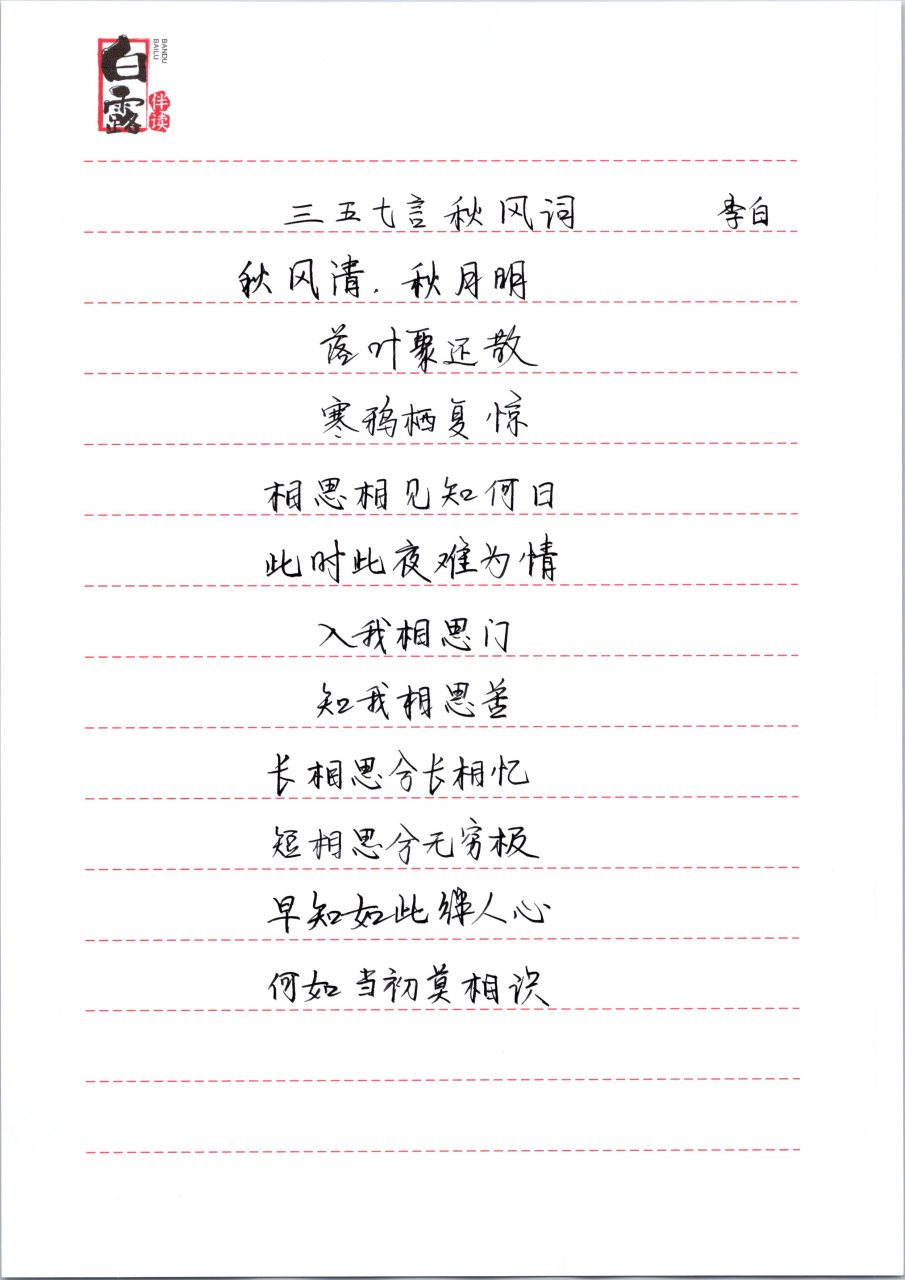 白露
伴读
BANDU
BAILU
三五七言秋风词 李白
秋风清.秋月明
落叶聚还散
寒鸦栖复惊
相思相见知何日
此时此夜难为情
入我相思门
知我相思苦
长相思兮长相忆
短相思兮无穷极
早知如此绊人心
何如当初莫相识